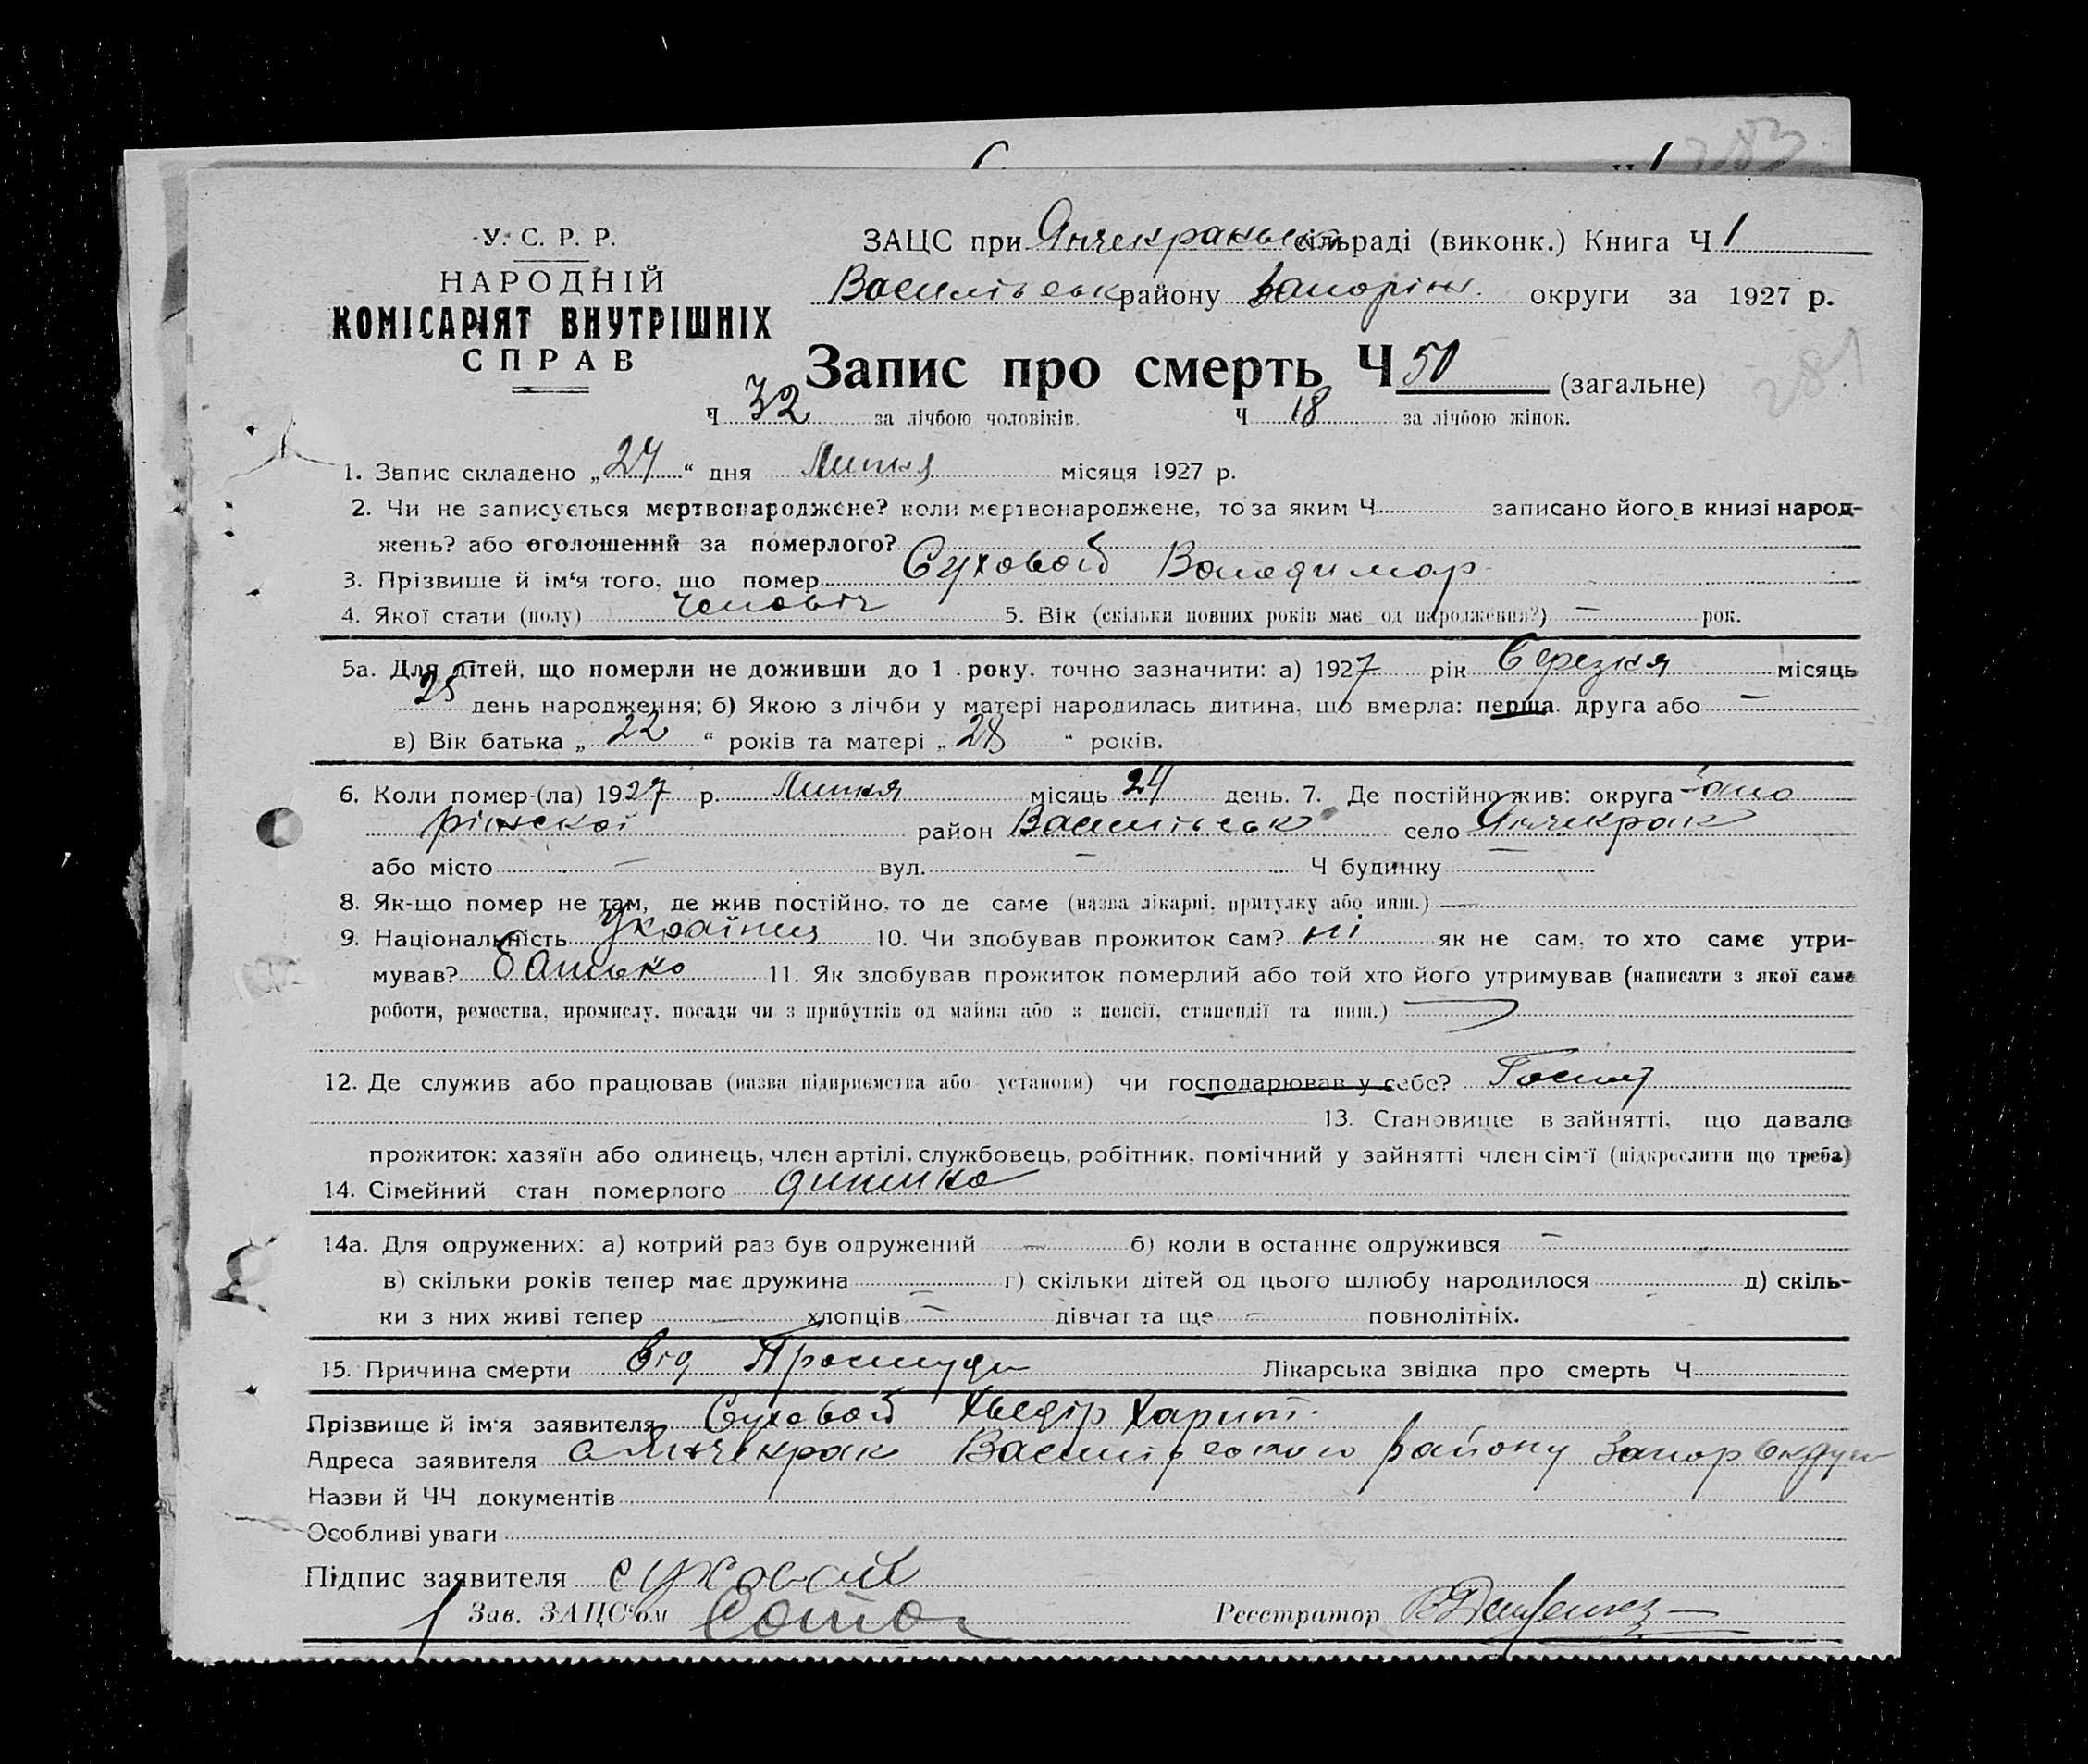 283
У. С. Р. Р.
НАРОДНІЙ
КОМІСАРІЯТ ВНУТРІШНІХ
СПРАВ
ЗАЦС при Янчекракськ сільраді (виконк.) Книга Ч 1
Васильевськ району Запоріж. округи за 1927 р.
Запис про смерть Ч 50 (загальне)
281
Ч 32 за лічбою чоловіків. Ч 18 за лічбою жінок.
1. Запис складено „ 24 “ дня Липня місяця 1927 р.
2. Чи не записується мертвонароджене? коли мертвонароджене, то за яким Ч записано його в книзі народ-
жень? або оголошений за померлого?
3. Прізвище й ім‘я того, що помер Суховой Володимар
4. Якої стати (полу) чоловіч 5. Вік (скільки повних років має од народження?) — рок.
5а. Для дітей, що померли не доживши до 1 року, точно зазначити: а) 1927 рік березня місяць
25 день народження; б) Якою з лічби у матері народилась дитина, що вмерла: перша. друга або —
в) Вік батька „ 22 “ років та матері „ 28 “ років.
6. Коли помер-(ла) 1927 р. Липня місяць 24 день. 7. Де постійно жив: округа Запо
ріжської район Васильевськ село Янчекрак
або місто — вул. — Ч будинку —
8. Як-що помер не там, де жив постійно, то де саме (назва лікарні, притулку або инш.) —
9. Національність Україниц 10. Чи здобував прожиток сам? ні як не сам, то хто саме утри-
мував? батько 11. Як здобував прожиток померлий або той хто його утримував (написати з якої саме
роботи, ремества, промислу, посади чи з прибутків од майна або з пенсії, стипендії та инш.)
12. Де служив або працював (назва підприємства або установи) чи господарював у себе? Господ
13. Становище в зайнятті, що давало
прожиток: хазяїн або одинець, член артілі, службовець, робітник, помічний у зайнятті член сім‘ї (підкреслити що треба)
14. Сімейний стан померлого дитина
14а. Для одружених: а) котрий раз був одружений — б) коли в останнє одружився —
в) скільки років тепер має дружина — г) скільки дітей од цього шлюбу народилося д) скіль-
ки з них живі тепер — хлопців — дівчат та ще — повнолітніх.
15. Причина смерти Від Простуди Лікарська звідка про смерть Ч
Прізвище й ім‘я заявителя Суховой Хведір Харит.
Адреса заявителя с Янчекрак Васильевського району Запор округи
Назви й ЧЧ документів
Особливі уваги
Підпис заявителя суховой
Зав. ЗАЦС‘ом Реєстратор